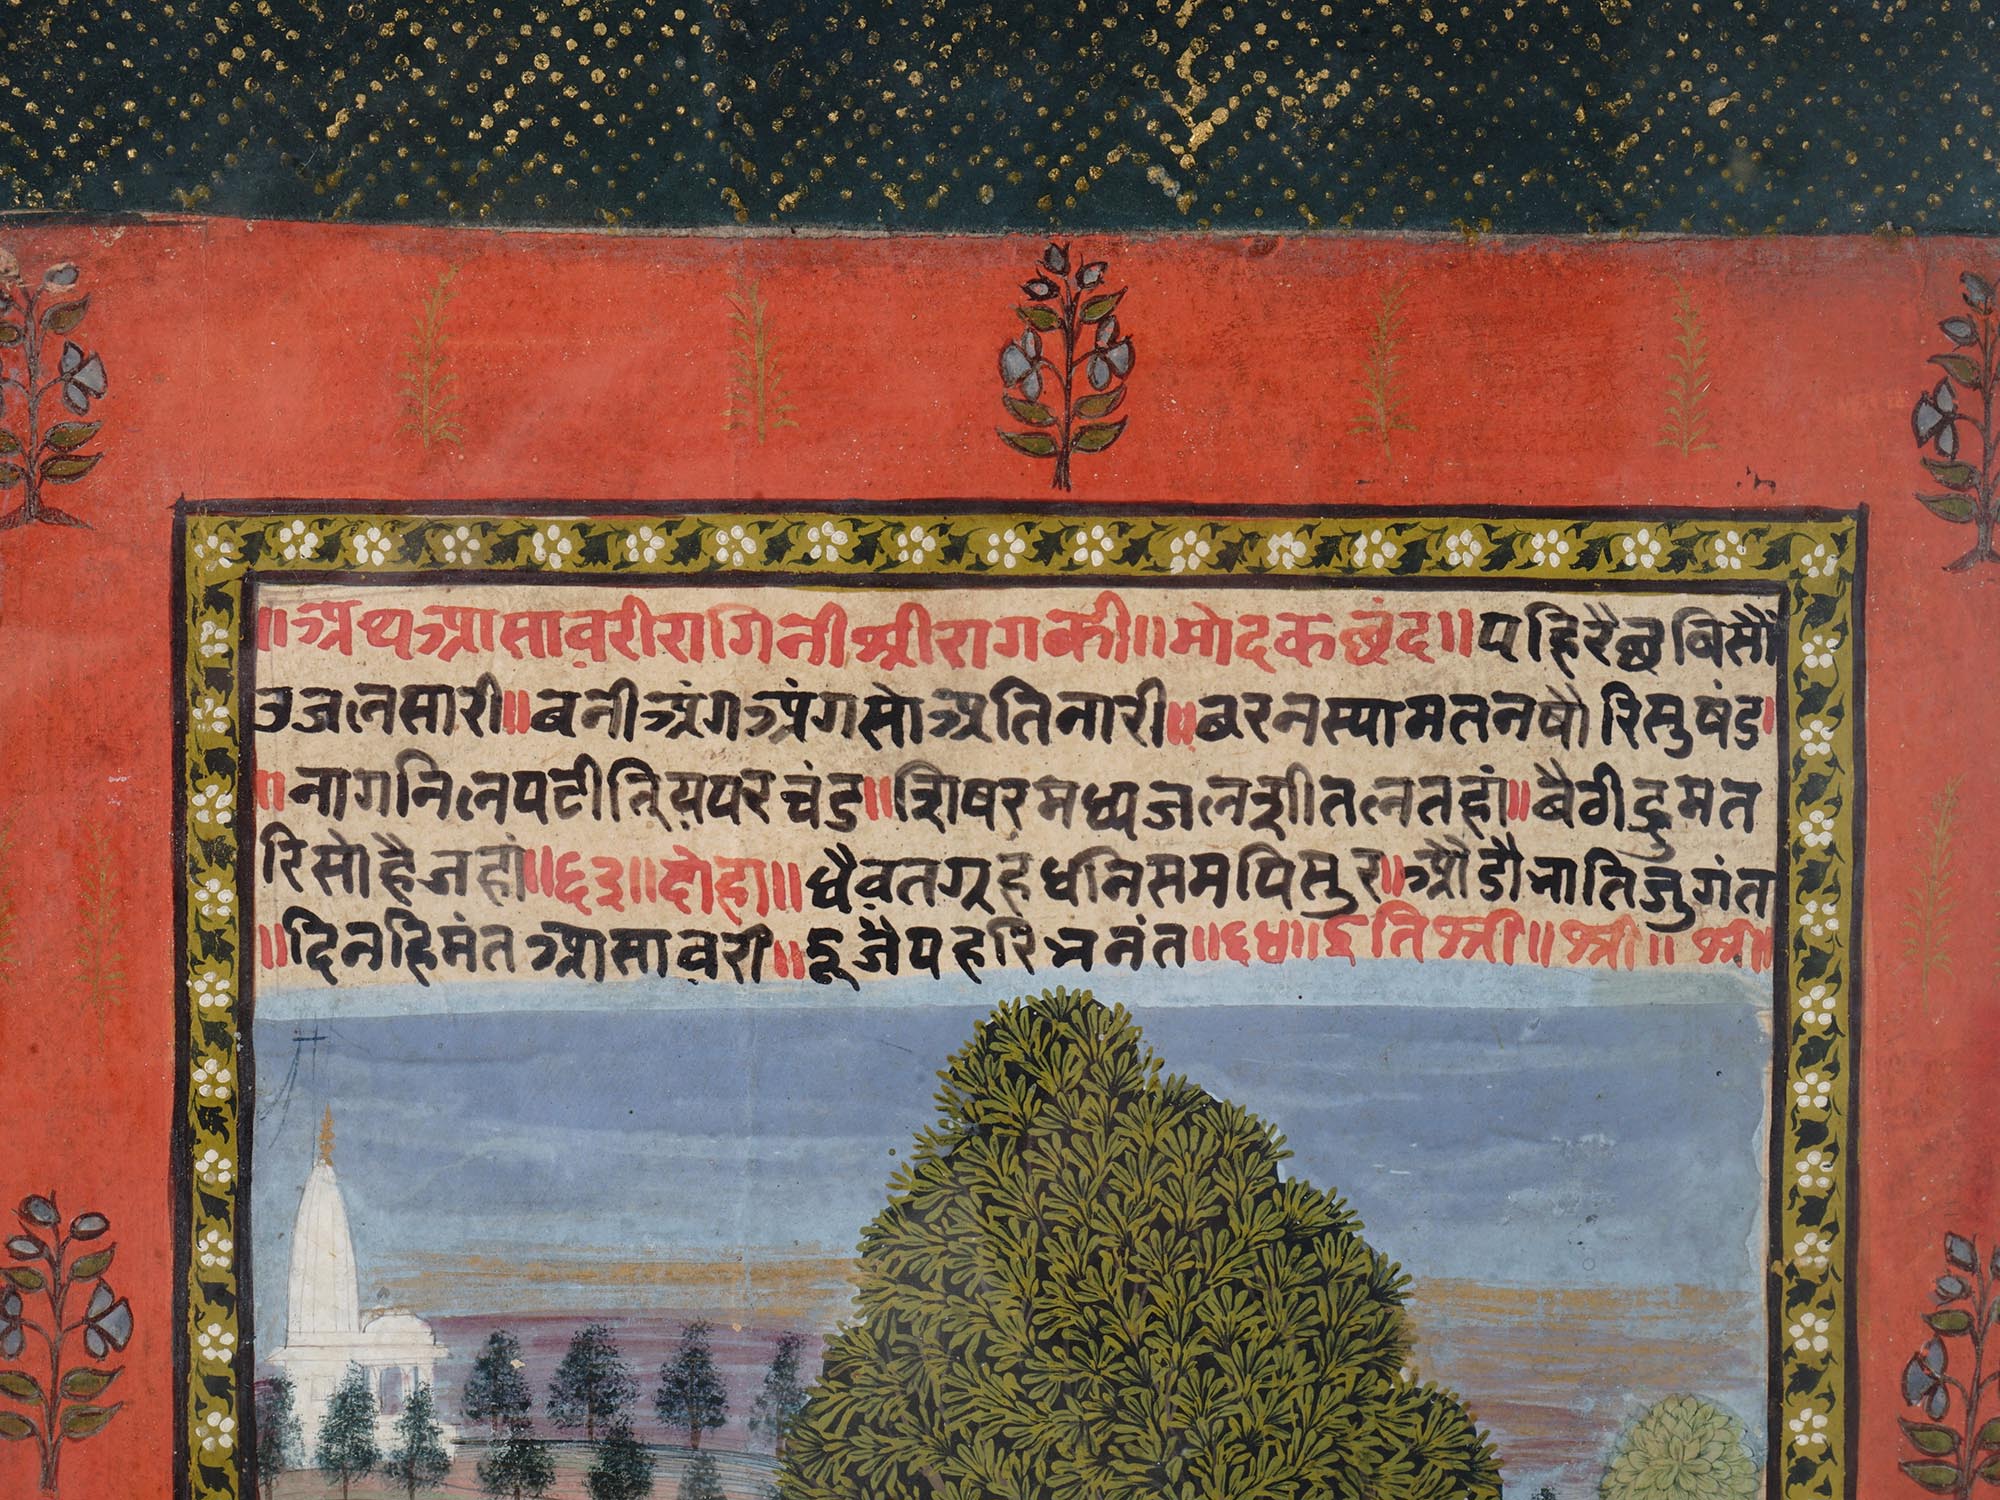 ॥अथआसावरीरागिनीश्रीरागकी॥मोदकछंद॥पहिरैछबिसौं
उजलसारी॥बनीअंगअंगसोअतिनारी॥बरनस्यामतनषौरिसुषंड।
।नागनिलपटीत्रियपरचंड॥शिषरमध्यजलशीतलतहां॥बैठीद्रुमत
रिसोहैजहां॥६३॥दोहा॥धैवतगृहधनिसमपिसुर॥औडौजातिजुगंत
॥दिनहिमंतआसावरी॥दूजैपहरिभनंत॥६४॥इतिश्री॥श्री॥श्री॥